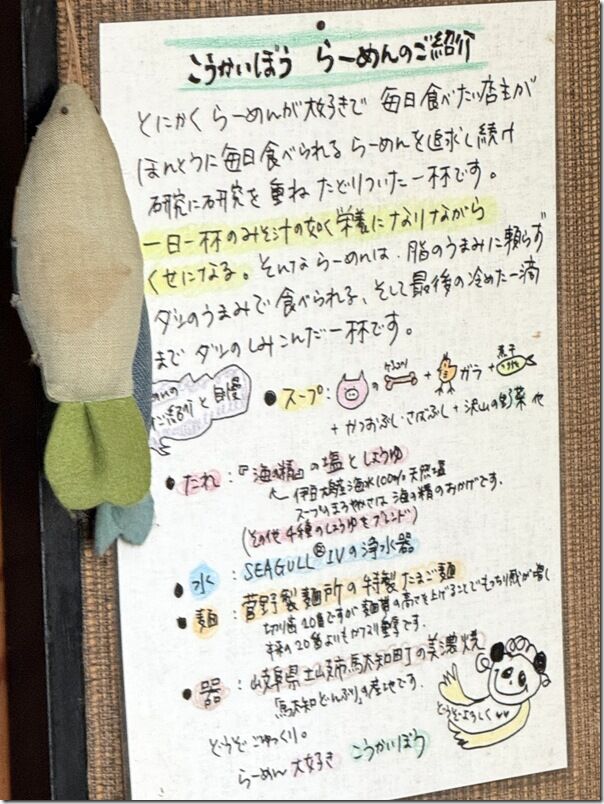 こうかいぼう らーめんのご紹介
とにかく らーめんが大好きで 毎日食べたい店主が
ほんとうに毎日食べられる らーめんを追求し続け
研究に研究を重ね たどりついた一杯です。
一日一杯のみそ汁の如く栄養になりながら
くせになる。そんならーめんは、脂のうまみに頼らず
ダシのうまみで食べられる、そして最後の冷めた一滴
まで ダシのしみこんだ一杯です。
ご紹介と自慢
●スープ: の ゲンコツ + ガラ + 煮干
+ かつおぶし・さばぶし + 沢山の野菜 他
●たれ:『海の精』の塩としょうゆ
伊豆大島産海水100%天然塩
スープのまろやかさは海の精のおかげです。
(その他4種のしょうゆをブレンド)
●水:SEAGULL® IVの浄水器
●麺:菅野製麺所の特製たまご麺
切り歯20番ですが麺帯の高さを上げることでもっちり感が増し
本来の20番よりもかなり重厚です。
●器:岐阜県土岐市駄知町の美濃焼
「駄知どんぶり」の産地です。
どうぞよろしく♥♥
どうぞごゆっくり。
らーめん大好き こうかいぼう